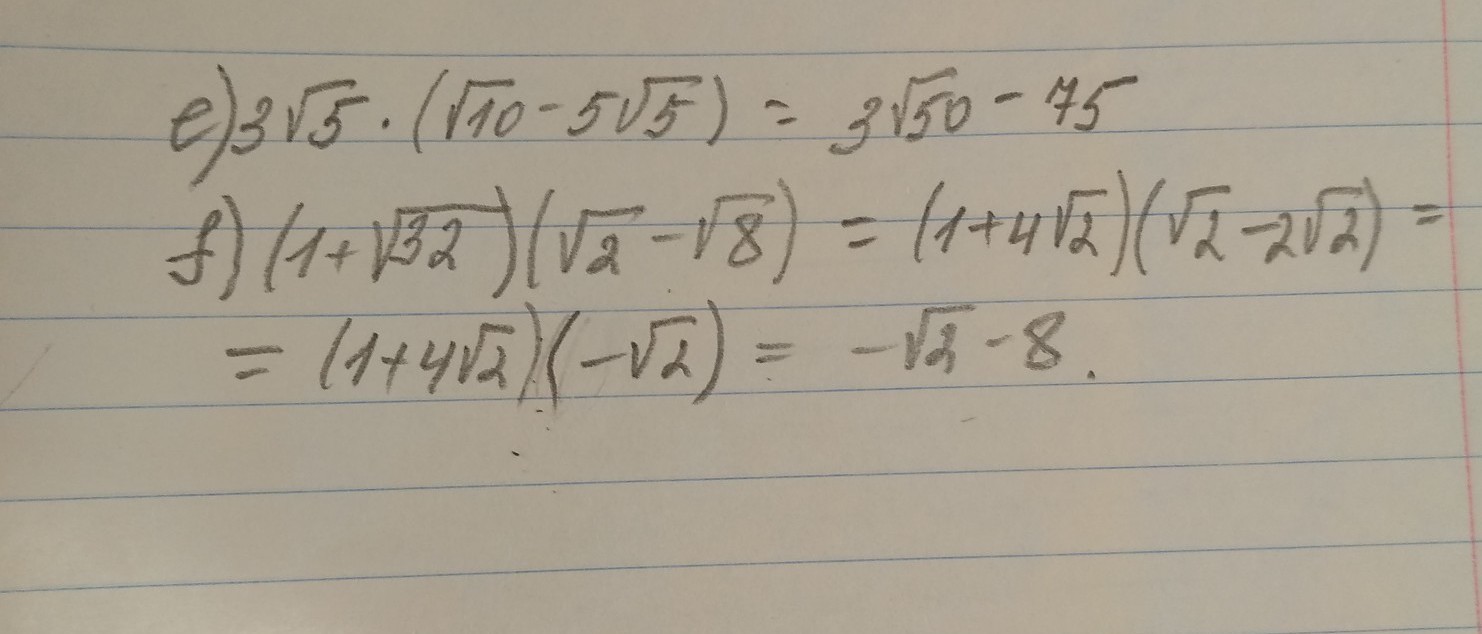 e) 3√5 · (√10 - 5√5) = 3√50 - 75
f) (1+√32)(√2 - √8) = (1+4√2)(√2 - 2√2) =
= (1+4√2)(-√2) = -√2 - 8.